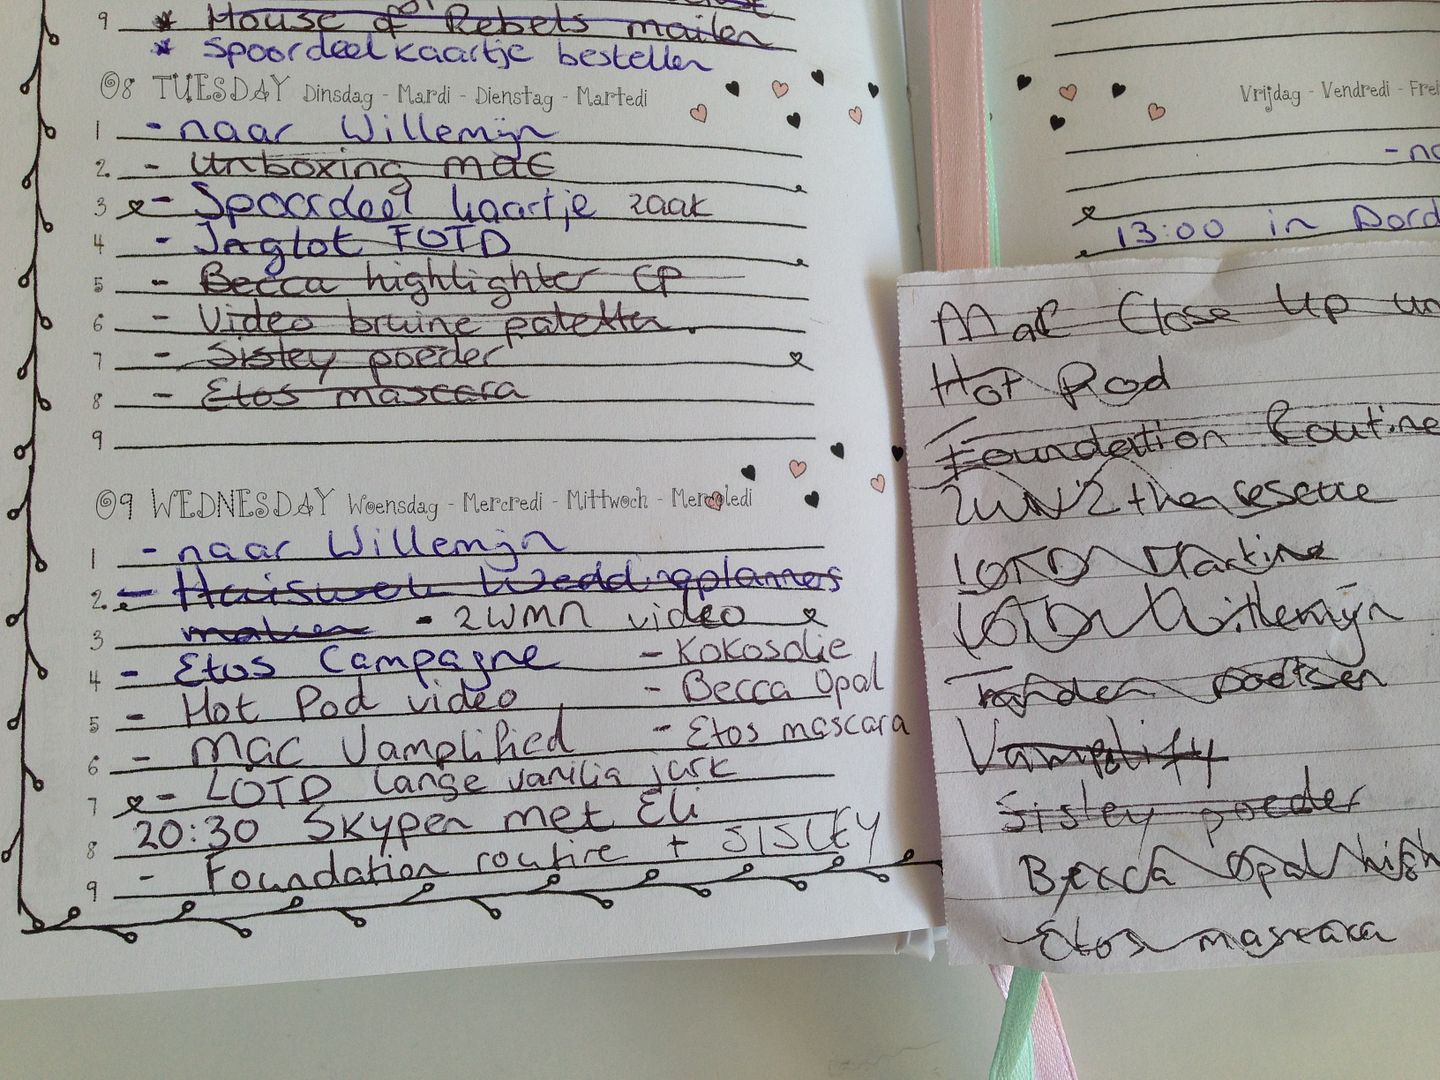 9 * House of Rebels mailen
* Spoordeelkaartje bestellen
08 TUESDAY Dinsdag - Mardi - Dienstag - Martedi
1 - naar Willemijn
2. - Unboxing MAC
3 - Spoordeel kaartje zaak
4 - Jaglot FOTD
5 - Becca highlighter CP
6 - Video bruine paletten
7 - Sisley poeder
8 - Etos mascara
9
09 WEDNESDAY Woensdag - Mercredi - Mittwoch - Mercoledi
1 - naar Willemijn
2. - Weddingplanners
3 maken - 2WMN video
4 - Etos Campagne - Kokosolie
5 - Hot Pod video - Becca Opal
6 - MAC Vamplified - Etos mascara
7 - LOTD lange vanilia jurk
20:30 Skypen met Eli
8
9 - Foundation routine + SISLEY
Vrijdag - Vendredi - Frei
- na
13:00 in Dord
MAC Close Up un
Hot Pod
Foundation Routine
LOTD Martine
LOTD Willemijn
Tanden poetsen
Vamplify
Sisley poeder
Becca Opal high
Etos mascara